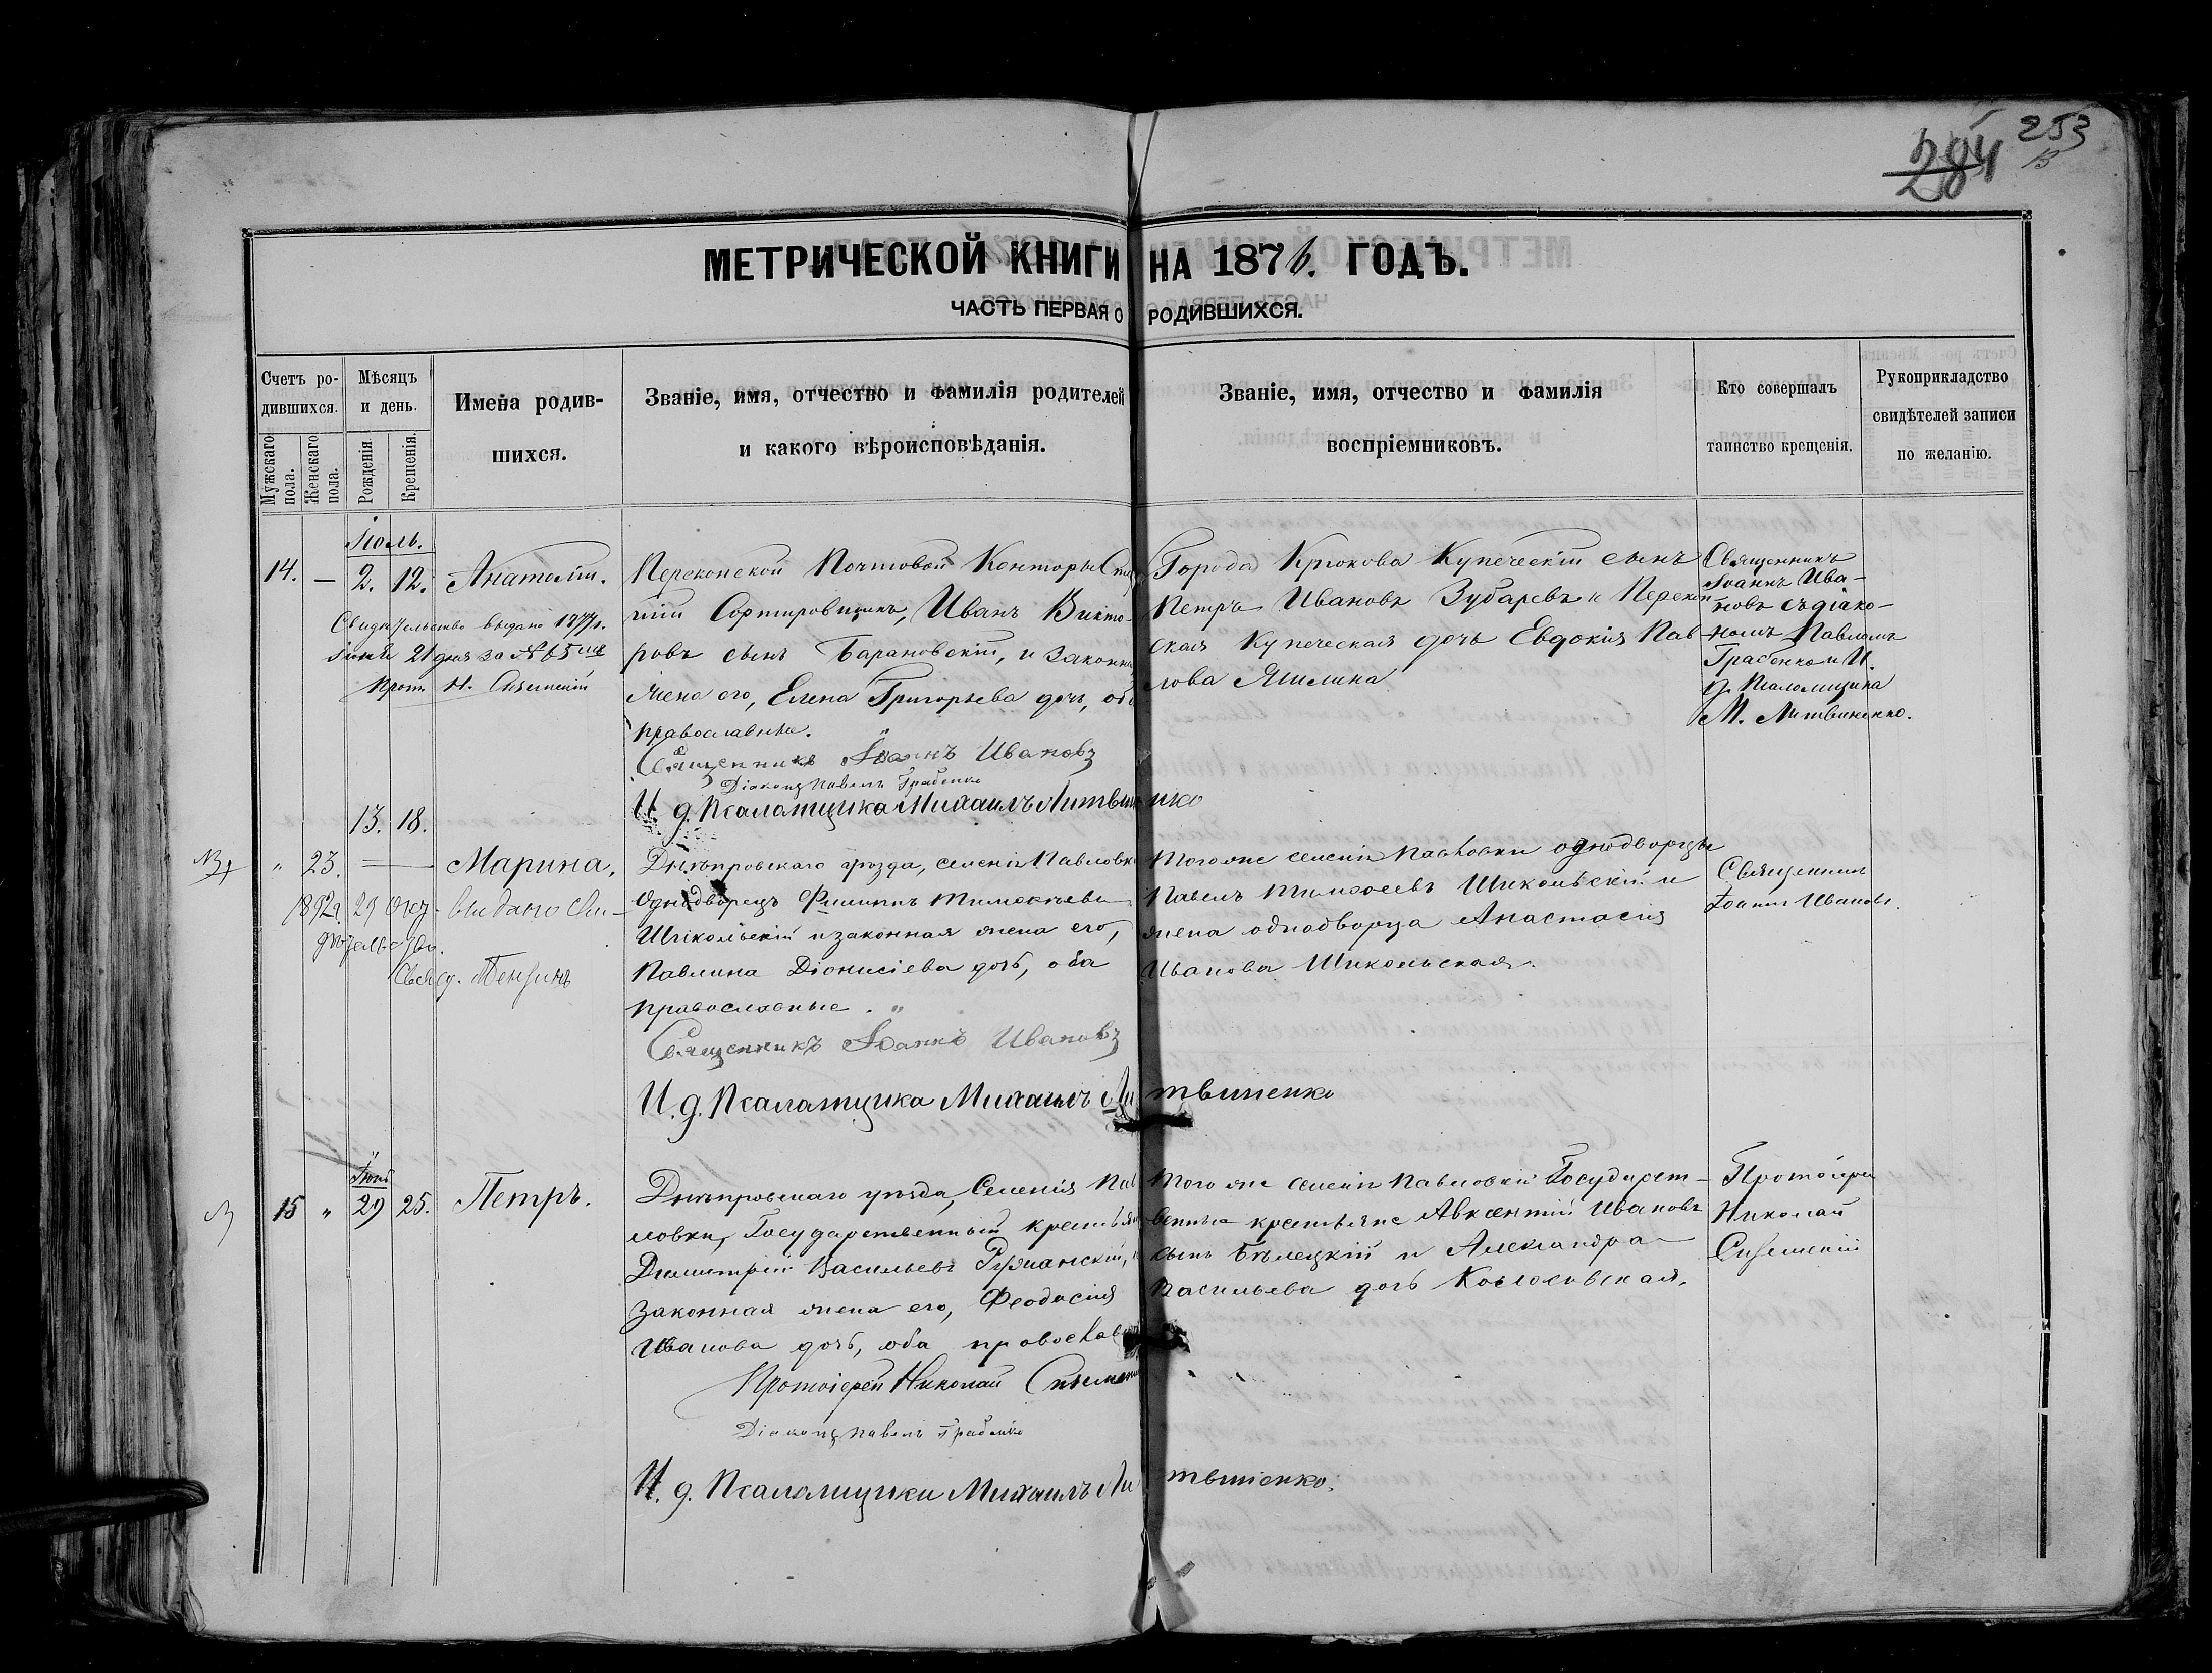 284 253
МЕТРИЧЕСКОЙ КНИГИ НА 1876. ГОДЪ.
ЧАСТЬ ПЕРВАЯ О РОДИВШИХСЯ.
Счетъ ро-
дившихся.
Мужскаго пола.
Женскаго пола.
Мѣсяцъ
и день.
Рожденія
Крещенія.
Имена родив-
шихся.
Званіе, имя, отчество и фамилія родителей
и какого вѣроисповѣданія.
Званіе, имя, отчество и фамилія
воспріемниковъ.
Кто совершалъ
таинство крещенія.
Рукоприкладство
свидѣтелей записи
по желанію.
Іюль.
14. — 2. 12. Анатолій.
Свидѣтельство выдано 1877г.
21 дня за №65
Прот. Н.
Перекопской Почтовой Конторы
Сортировщикъ, Иванъ Викто-
ровъ сынъ Барановскій, и законная
жена его, Елена Григорьева дочь, оба
православные.
Священникъ Іоаннъ Ивановъ
Діаконъ Павелъ Грабенко
И. д. Псаломщика Михаилъ Литвиненко
Города Крюкова Купеческій сынъ
Петръ Ивановъ Зубаревъ и Перекоп-
ская Купеческая дочь Евдокія Пав-
лова
Священникъ
Іоаннъ Ива-
новъ съ діако-
номъ Павломъ
Грабенко и И.
д. Псаломщика
М. Литвиненко.
13. 18.
" 23. — Марина.
1892г. 29 Окт. выдано сви-
дѣтельство.
Свящ.
Днѣпровскаго уѣзда, селенія Павловки
Однодворецъ Филиппъ Тимоѳеевъ
Шикольскій и законная жена его,
Павлина Діонисіева дочь, оба
православные.
Священникъ Іоаннъ Ивановъ
И. д. Псаломщика Михаилъ Литвиненко
Того же селенія Павловки однодворецъ
Павелъ Тимоѳеевъ Шикольскій и
жена однодворца Анастасія
Иванова Шикольская.
Священникъ
Іоаннъ Ивановъ.
15 " 29 25. Петръ.
Днѣпровскаго уѣзда, Селенія Пав-
ловки, Государственный крестьянинъ
Димитрій Васильевъ Ружанскій, и
законная жена его, Феодосія
Иванова дочь, оба православные
Протоіерей Николай
Діаконъ Павелъ Грабенко
И. д. Псаломщика Михаилъ Литвиненко.
Того же селенія Павловки Государст-
венные крестьяне Авксентій Ивановъ
сынъ Бѣлецкій и Александра
Васильева дочь Козловская.
Протоіерей
Николай